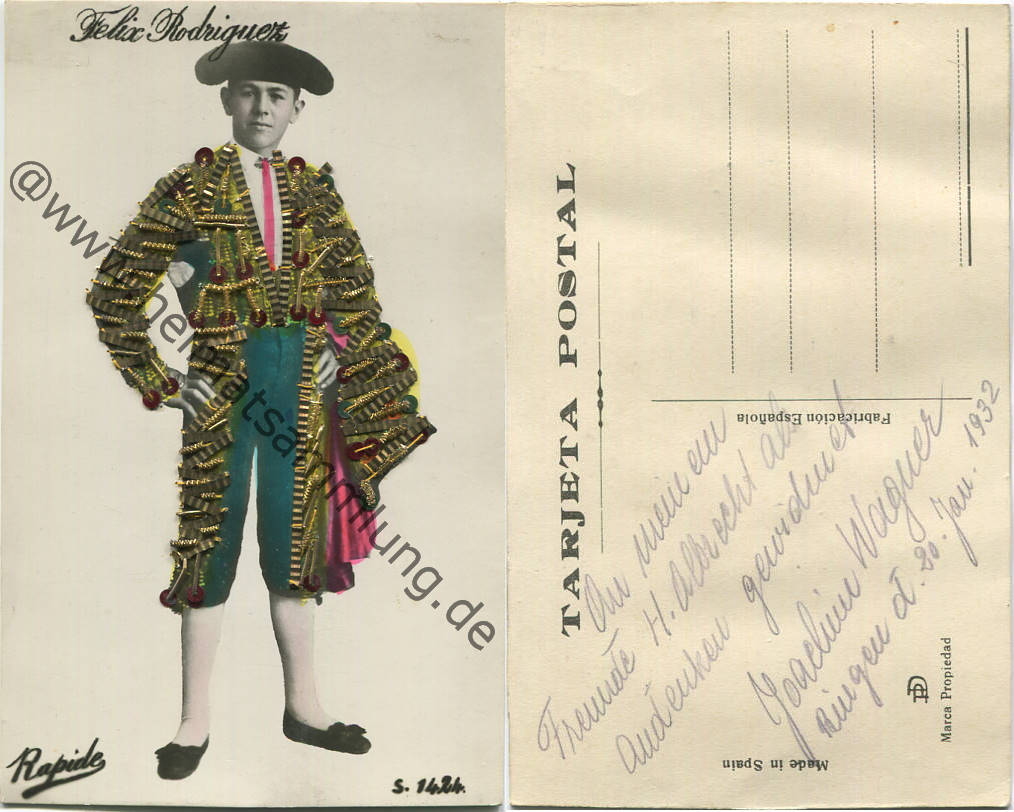 Felix Rodriguez
@www.heimatsammlung.de
Rapide
S. 1424.
TARJETA POSTAL
Fabricación Española
An meinem
Freunde H. Albrecht als
Andenken gewidmet
Joachim Wagner
Bingen d. 30. Jan. 1932
Marca Propiedad
Made in Spain